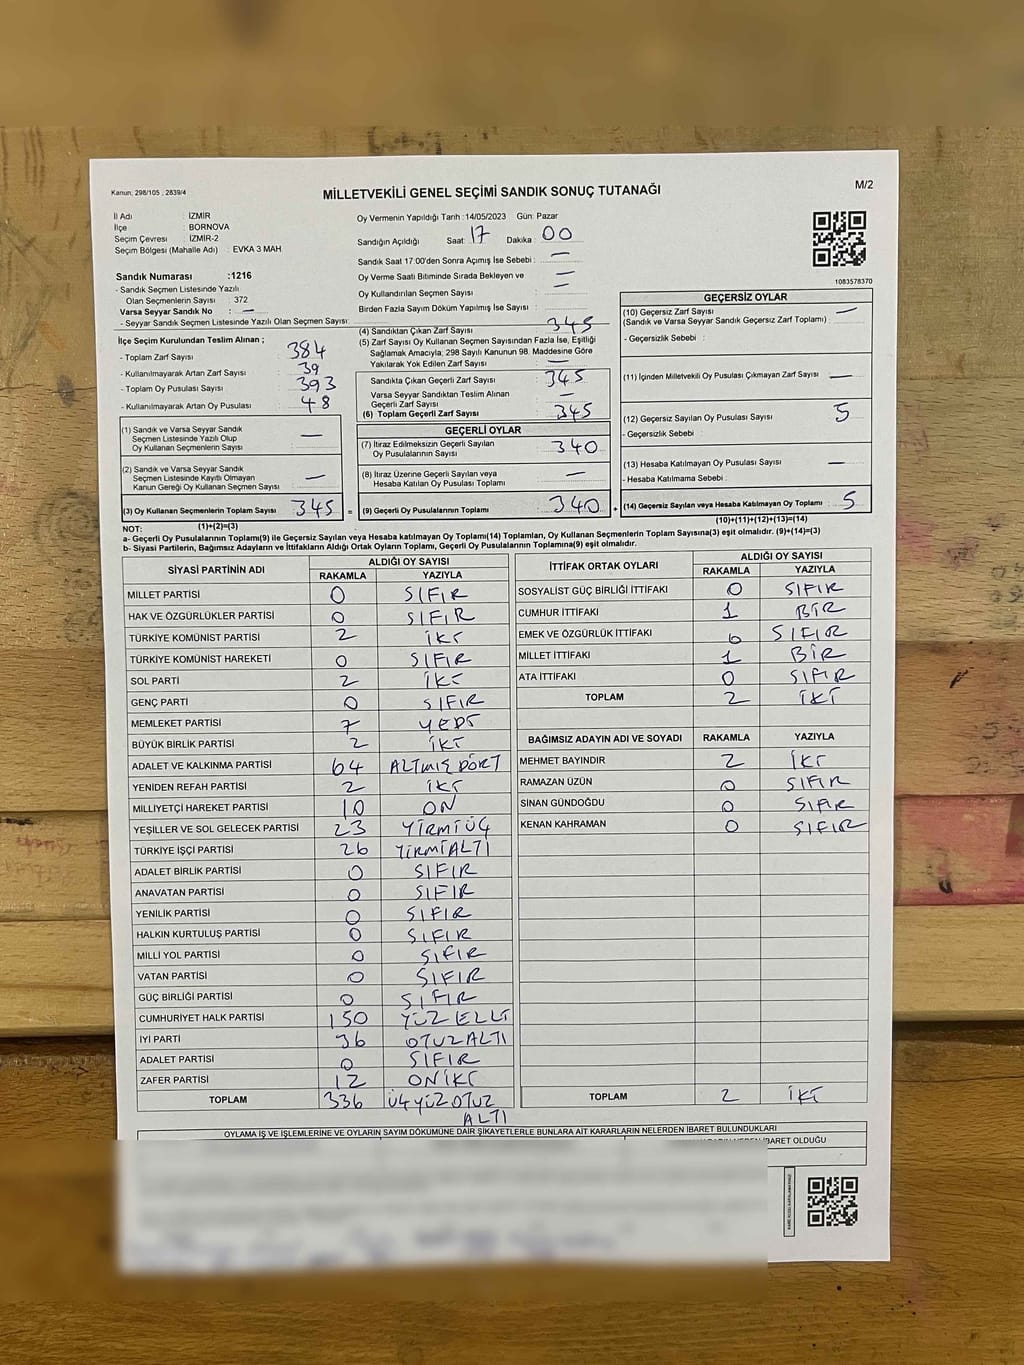 Kanun, 298/105 , 2839/4
MİLLETVEKİLİ GENEL SEÇİMİ SANDIK SONUÇ TUTANAĞI
M/2
İl Adı : İZMİR
İlçe : BORNOVA
Seçim Çevresi : İZMİR-2
Seçim Bölgesi (Mahalle Adı) : EVKA 3 MAH
Sandık Numarası :1216
- Sandık Seçmen Listesinde Yazılı
Olan Seçmenlerin Sayısı : 372
Varsa Seyyar Sandık No : —
- Seyyar Sandık Seçmen Listesinde Yazılı Olan Seçmen Sayısı:
Oy Vermenin Yapıldığı Tarih :14/05/2023 Gün: Pazar
Sandığın Açıldığı Saat: 17 Dakika : 00
Sandık Saat 17:00'den Sonra Açımış İse Sebebi : —
Oy Verme Saati Bitiminde Sırada Bekleyen ve —
Oy Kullandırılan Seçmen Sayısı : —
Birden Fazla Sayım Döküm Yapılmış İse Sayısı :
1083578370
İlçe Seçim Kurulundan Teslim Alınan ;
- Toplam Zarf Sayısı : 384
- Kullanılmayarak Artan Zarf Sayısı : 39
- Toplam Oy Pusulası Sayısı : 393
- Kullanılmayarak Artan Oy Pusulası : 48
(1) Sandık ve Varsa Seyyar Sandık
Seçmen Listesinde Yazılı Olup
Oy Kullanan Seçmenlerin Sayısı —
(2) Sandık ve Varsa Seyyar Sandık
Seçmen Listesinde Kayıtlı Olmayan
Kanun Gereği Oy Kullanan Seçmen Sayısı —
(3) Oy Kullanan Seçmenlerin Toplam Sayısı 345 =
(1)+(2)=(3)
(4) Sandıktan Çıkan Zarf Sayısı : 345
(5) Zarf Sayısı Oy Kullanan Seçmen Sayısından Fazla İse, Eşitliği
Sağlamak Amacıyla; 298 Sayılı Kanunun 98. Maddesine Göre
Yakılarak Yok Edilen Zarf Sayısı : —
Sandıkta Çıkan Geçerli Zarf Sayısı : 345
Varsa Seyyar Sandıktan Teslim Alınan
Geçerli Zarf Sayısı : —
(6) Toplam Geçerli Zarf Sayısı : 345
GEÇERLİ OYLAR
(7) İtiraz Edilmeksizin Geçerli Sayılan
Oy Pusulalarının Sayısı : 340
(8) İtiraz Üzerine Geçerli Sayılan veya
Hesaba Katılan Oy Pusulası Toplamı : —
(9) Geçerli Oy Pusulalarının Toplamı : 340 +
GEÇERSİZ OYLAR
(10) Geçersiz Zarf Sayısı —
(Sandık ve Varsa Seyyar Sandık Geçersiz Zarf Toplamı) :
- Geçersizlik Sebebi :
(11) İçinden Milletvekili Oy Pusulası Çıkmayan Zarf Sayısı : —
(12) Geçersiz Sayılan Oy Pusulası Sayısı : 5
- Geçersizlik Sebebi :
(13) Hesaba Katılmayan Oy Pusulası Sayısı : —
- Hesaba Katılmama Sebebi :
(14) Geçersiz Sayılan veya Hesaba Katılmayan Oy Toplamı : 5
(10)+(11)+(12)+(13)=(14)
NOT:
a- Geçerli Oy Pusulalarının Toplamı(9) ile Geçersiz Sayılan veya Hesaba katılmayan Oy Toplamı(14) Toplamları, Oy Kullanan Seçmenlerin Toplam Sayısına(3) eşit olmalıdır. (9)+(14)=(3)
b- Siyasi Partilerin, Bağımsız Adayların ve İttifakların Aldığı Ortak Oyların Toplamı, Geçerli Oy Pusulalarının Toplamına(9) eşit olmalıdır.
SİYASİ PARTİNİN ADI ALDIĞI OY SAYISI
RAKAMLA YAZIYLA
MİLLET PARTİSİ 0 SIFIR
HAK VE ÖZGÜRLÜKLER PARTİSİ 0 SIFIR
TÜRKİYE KOMÜNİST PARTİSİ 2 İKİ
TÜRKİYE KOMÜNİST HAREKETİ 0 SIFIR
SOL PARTİ 2 İKİ
GENÇ PARTİ 0 SIFIR
MEMLEKET PARTİSİ 7 YEDİ
BÜYÜK BİRLİK PARTİSİ 2 İKİ
ADALET VE KALKINMA PARTİSİ 64 ALTMIŞ DÖRT
YENİDEN REFAH PARTİSİ 2 İKİ
MİLLİYETÇİ HAREKET PARTİSİ 10 ON
YEŞİLLER VE SOL GELECEK PARTİSİ 23 YİRMİ ÜÇ
TÜRKİYE İŞÇİ PARTİSİ 26 YİRMİALTI
ADALET BİRLİK PARTİSİ 0 SIFIR
ANAVATAN PARTİSİ 0 SIFIR
YENİLİK PARTİSİ 0 SIFIR
HALKIN KURTULUŞ PARTİSİ 0 SIFIR
MİLLİ YOL PARTİSİ 0 SIFIR
VATAN PARTİSİ 0 SIFIR
GÜÇ BİRLİĞİ PARTİSİ 0 SIFIR
CUMHURİYET HALK PARTİSİ 150 YÜZ ELLİ
İYİ PARTİ 36 OTUZALTI
ADALET PARTİSİ 0 SIFIR
ZAFER PARTİSİ 12 ONİKİ
TOPLAM 336 ÜÇYÜZ OTUZ
ALTI
İTTİFAK ORTAK OYLARI ALDIĞI OY SAYISI
RAKAMLA YAZIYLA
SOSYALİST GÜÇ BİRLİĞİ İTTİFAKI 0 SIFIR
CUMHUR İTTİFAKI 1 BİR
EMEK VE ÖZGÜRLÜK İTTİFAKI 0 SIFIR
MİLLET İTTİFAKI 1 BİR
ATA İTTİFAKI 0 SIFIR
TOPLAM 2 İKİ
BAĞIMSIZ ADAYIN ADI VE SOYADI RAKAMLA YAZIYLA
MEHMET BAYINDIR 2 İKİ
RAMAZAN ÜZÜN 0 SIFIR
SİNAN GÜNDOĞDU 0 SIFIR
KENAN KAHRAMAN 0 SIFIR
TOPLAM 2 İKİ
OYLAMA İŞ VE İŞLEMLERİNE VE OYLARIN SAYIM DÖKÜMÜNE DAİR ŞİKAYETLERLE BUNLARA AİT KARARLARIN NELERDEN İBARET BULUNDUKLARI
İBARET OLDUĞU